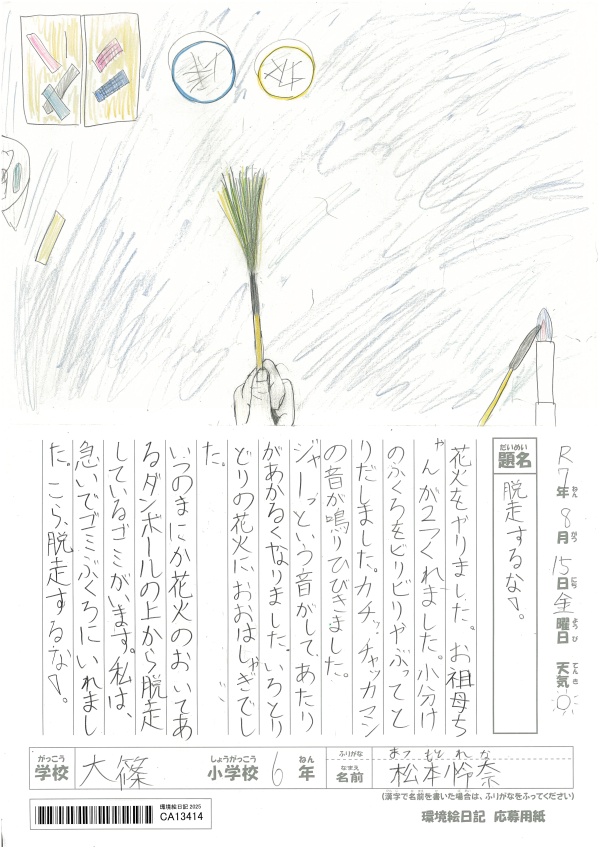 R7年 8月 15日 金曜日 天気
ねん がつ にち ようび てんき
だいめい
題名
脱走するな!。
花火をやりました。お祖母ち
ゃんが2つくれました。小分け
のふくろをビリビリやぶってと
りだしました。カチッ。チャッカマン
の音が鳴りひびきました。
ジャーッという音がして、あたり
があかるくなりました。いろとり
どりの花火におおはしゃぎでし
た。
いつのまにか花火のおいてあ
るダンボールの上から脱走
しているゴミがいます。私は、
急いでゴミぶくろにいれまし
た。こら、脱走するな!。
がっこう
学校
大篠
しょうがっこう
小学校
6
ねん
年
ふりがな
まつもと れな
なまえ
名前
松本怜奈
(漢字で名前を書いた場合は、ふりがなをふってください)
環境絵日記 2025
CA13414
環境絵日記 応募用紙